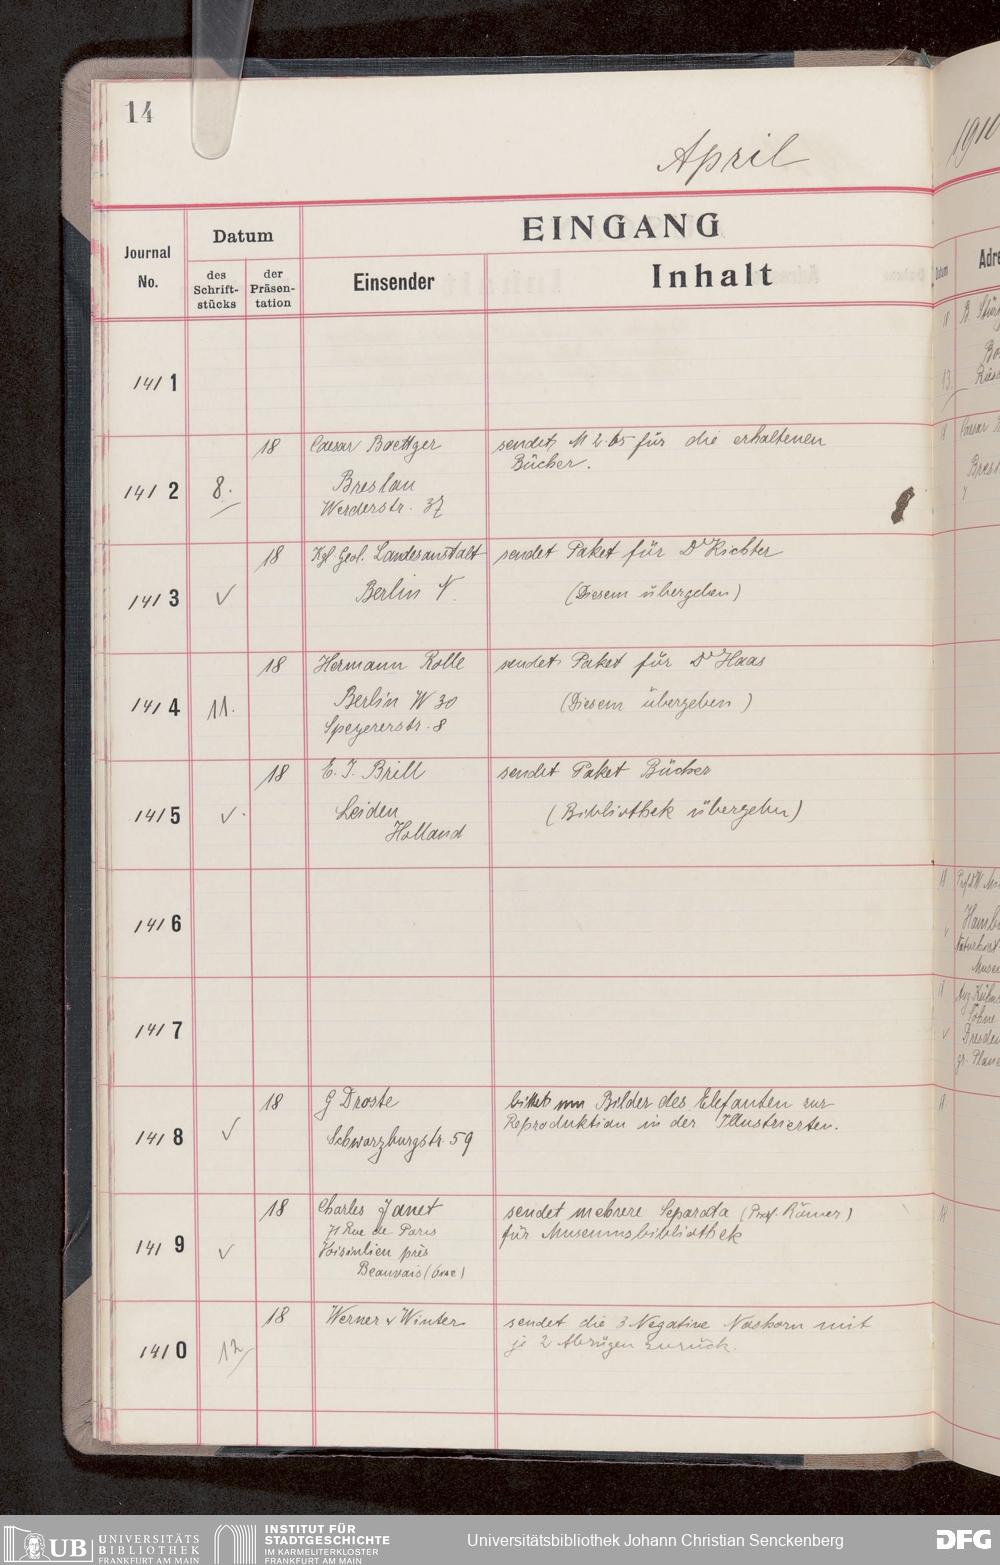 14
April
1910
EINGANG
Journal No.
Datum
des Schriftstücks
der Präsentation
Einsender
Inhalt
Datum
Adre
1411
1412
8.
18
Caesar Boettger
Breslau
Werderstr. 37
sendet M 2.65 für die erhaltenen
Bücher.
1413
18
Kgl Geol. Landesanstalt
Berlin N.
sendet Paket für Dr Richter
(Diesem übergeben)
1414
11.
18
Hermann Rolle
Berlin W 30
Speyererstr. 8
sendet Paket für Dr Haas
(Diesem übergeben)
1415
18
E. J. Brill
Leiden
Holland
sendet Paket Bücher
(Bibliothek übergeben)
1416
1417
1418
18
G Droste
Schwarzburgstr. 59
bittet um Bilder des Elefanten zur
Reproduktion in der Illustrierten.
1419
18
Charles Janet
71 Rue de Paris
Voisinlieu près
Beauvais (Oise)
sendet mehrere Separata (Prof. Römer)
für Museumsbibliothek
1410
12
18
Werner & Winter
sendet die 3 Negative Nashorn mit
je 2 Abzügen zurück.
UB UNIVERSITÄTS
BIBLIOTHEK
FRANKFURT AM MAIN
INSTITUT FÜR
STADTGESCHICHTE
IM KARMELITERKLOSTER
FRANKFURT AM MAIN
Universitätsbibliothek Johann Christian Senckenberg
DFG